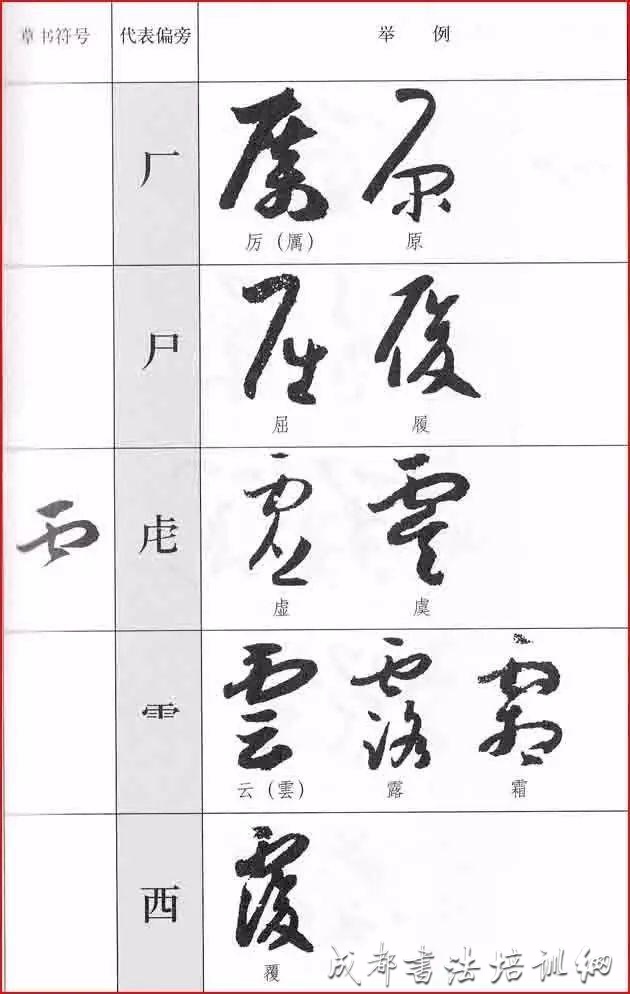 草书符号 代表偏旁 举例
厂 厉（厲） 原
尸 屈 履
虍 虚 虞
⻗ 云（雲） 露 霜
西 覆
成都书法培训网